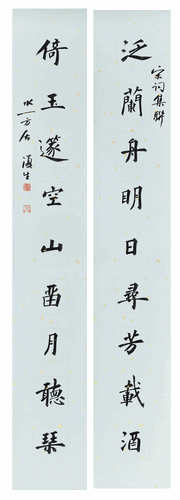 宋词集聯
泛蘭舟明日尋芳載酒
倚玉邃空山畱月聽琴
水一方居